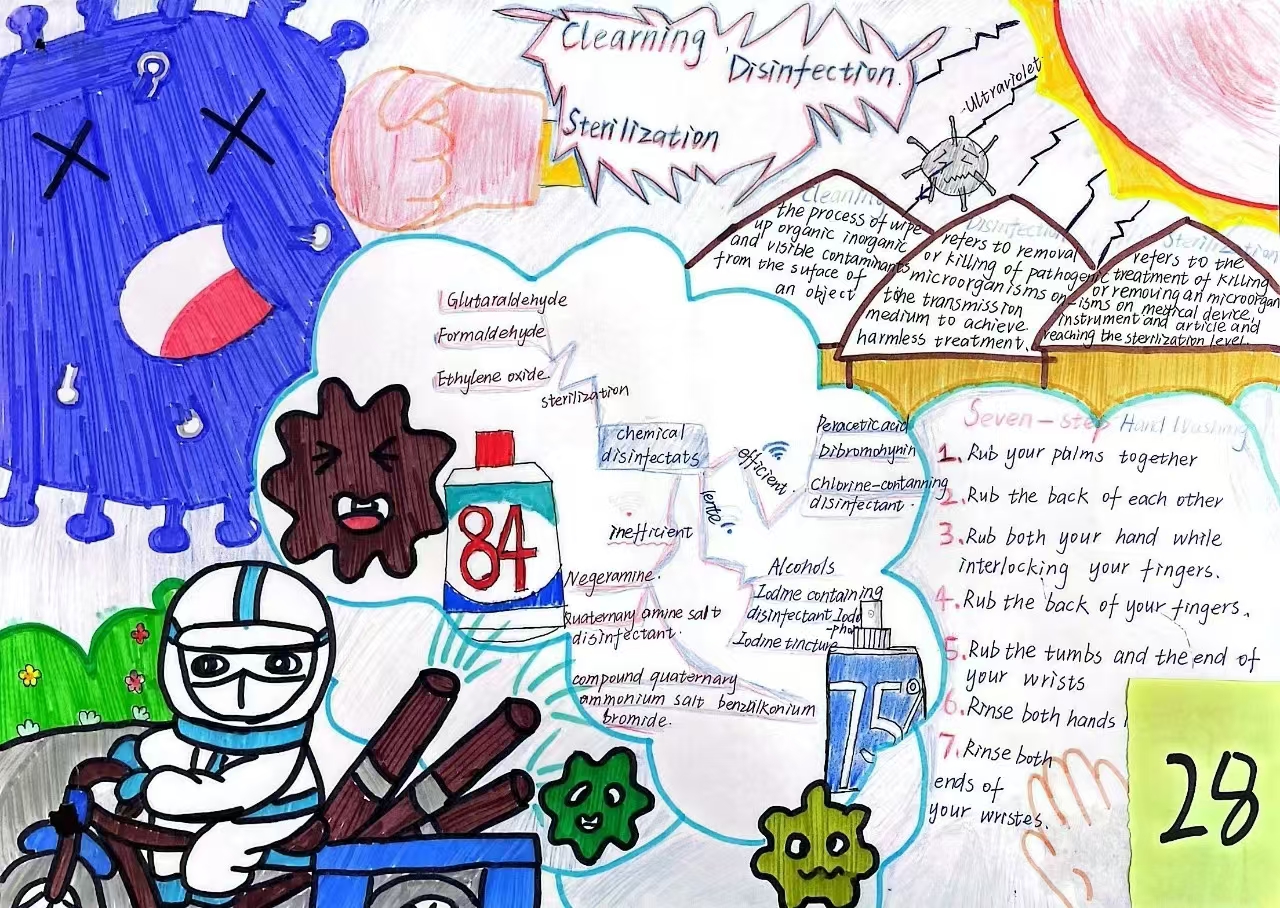 Clearning Disinfection.
Sterilization
Ultraviolet
Cleaning
the process of wipe
up organic inorganic
and visible contaminants
from the suface of
an object
Disinfection
refers to removal
or killing of pathogenic
microorganisms on
the transmission
medium to achieve
harmless treatment.
Sterilization
refers to the
treatment of killing
or removing an microorgan
-isms on medical device,
instrument and article and
reaching the sterilization level.
Glutaraldehyde
Formaldehyde
Ethylene oxide
sterilization
chemical
disinfectats
efficient
Peracetic acid
Dibromohynin
Chlorine-contanning
disinfectant.
inefficient
Negeramine.
Quaternary amine salt
disinfectant.
compound quaternary
ammonium salt benzalkonium
bromide.
lente
Alcohols
Iodine containing
disinfectant Iodo
-phor
Iodine tincture
84
75%
Seven-step Hand Washing
1. Rub your palms together
2. Rub the back of each other
3. Rub both your hand while
interlocking your fingers.
4. Rub the back of your fingers.
5. Rub the tumbs and the end of
your wrists
6. Rinse both hands
7. Rinse both
ends of
your wristes.
28